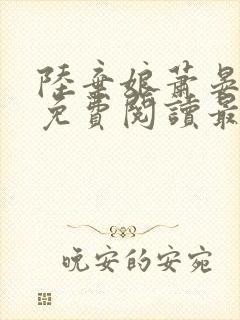 陸棄娘蕭晏
免費閱讀最
晚安的安宛